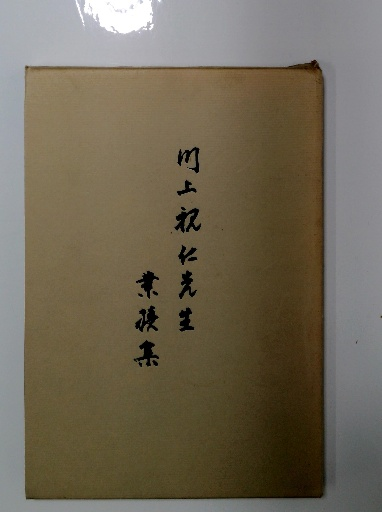 川上祝仁先生
業績集